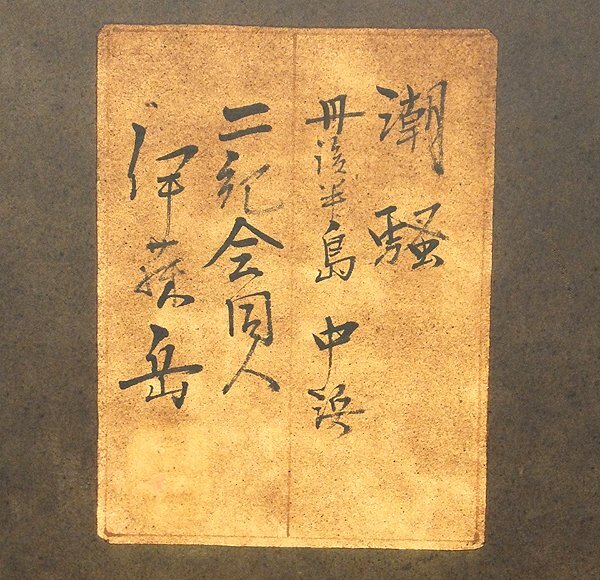 潮騒
丹後半島 中浜
二紀会同人
伊藤岳